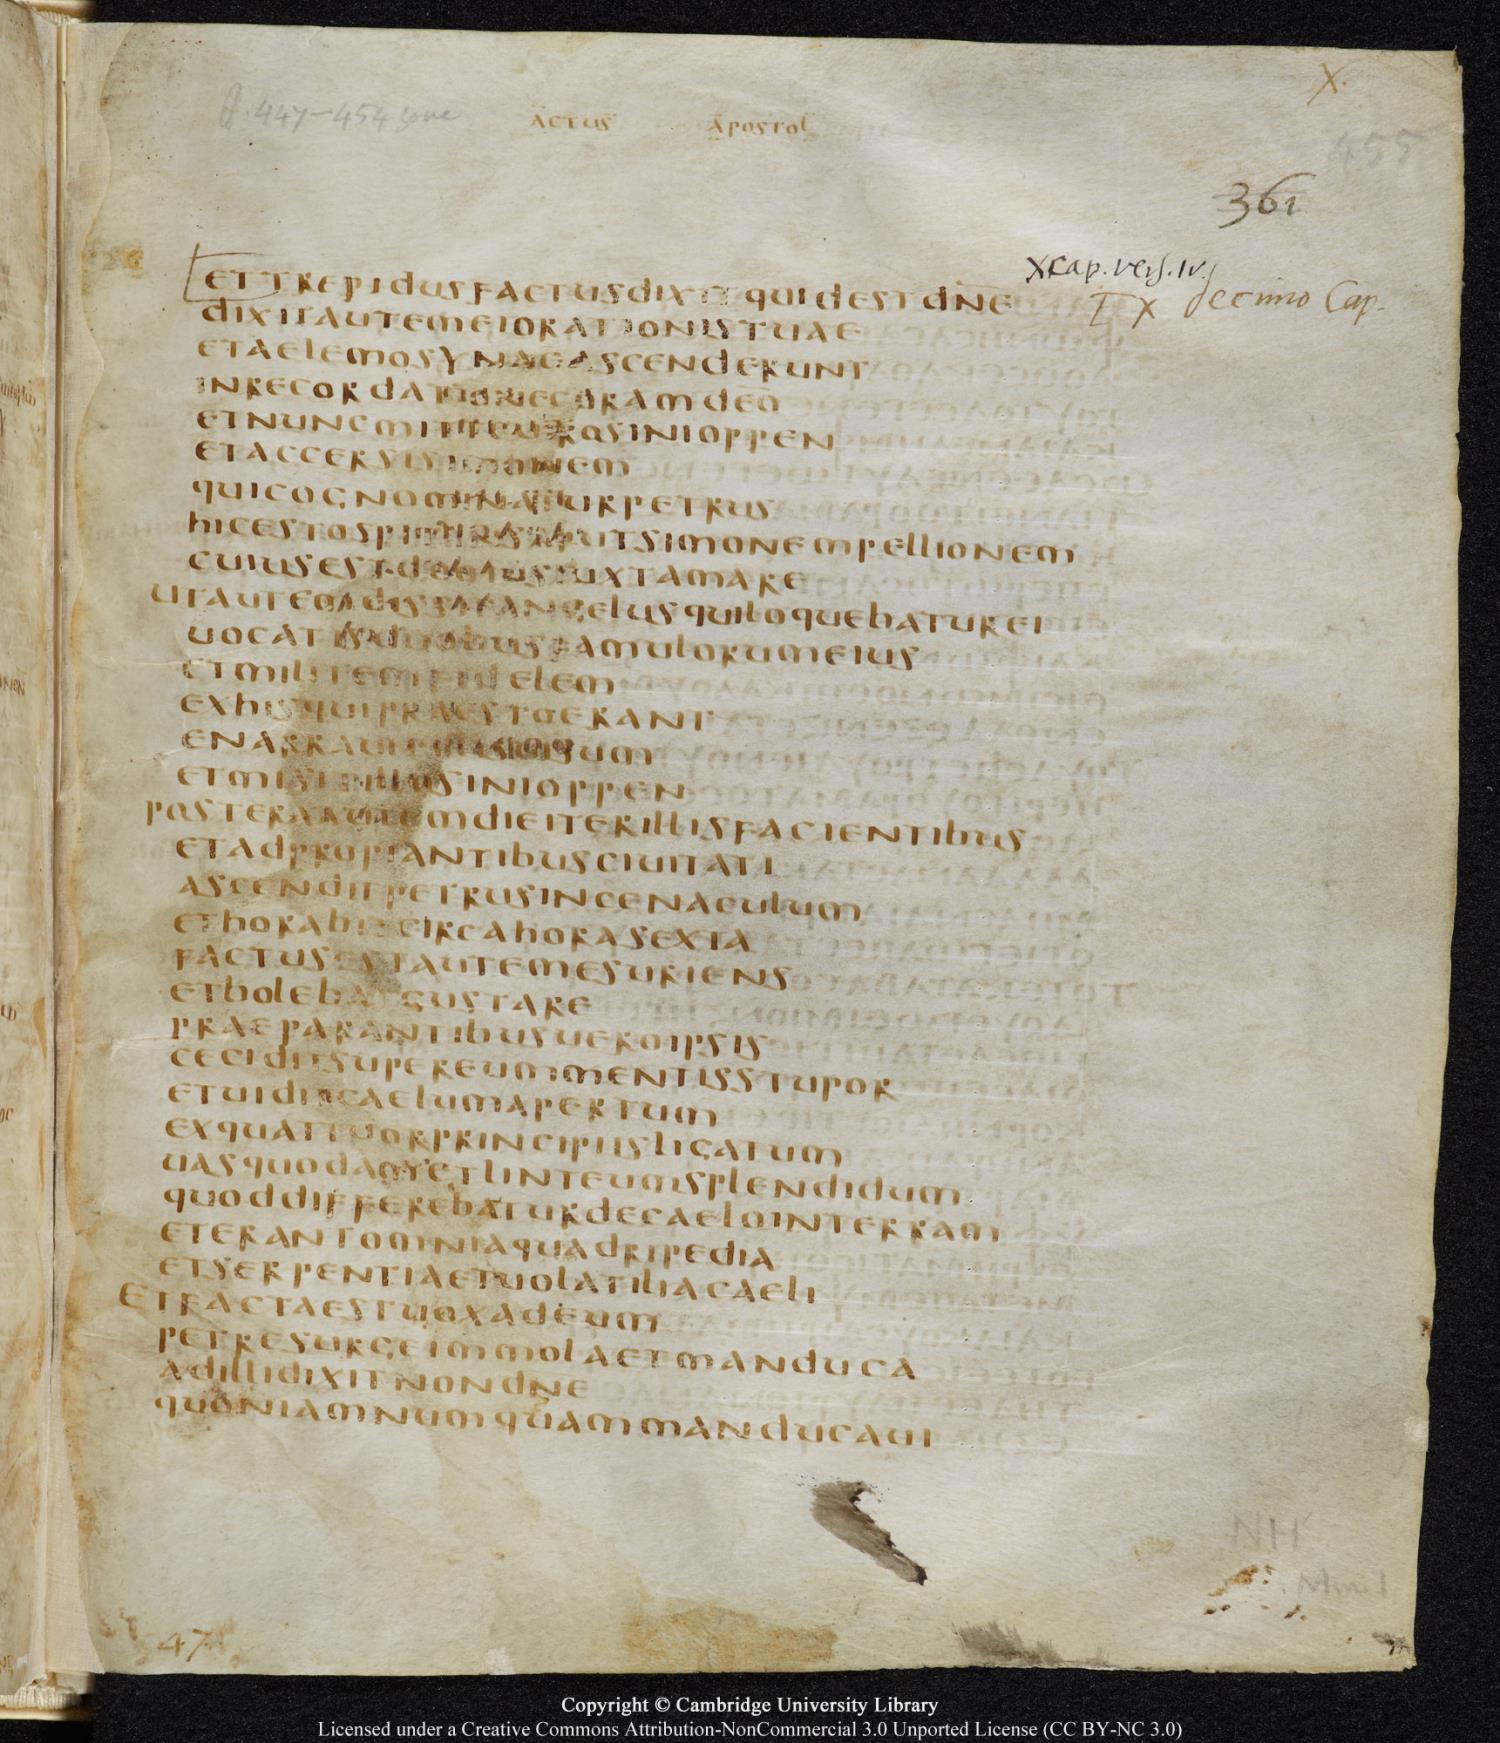 ff. 447–454 gone
ACTUS APOSTOL
X.
455
361
XCap. vers. IV.
EX decimo Cap.
ETTREPIDUSFACTUSDIXIT QUIDESTDNE
DIXITAUTEMEIORATIONISTUAE
ETAELEMOSYNAEASCENDERUNT
INRECORDATIONECORAMDEO
ETNUNCMITTEUIROSINIOPPEN
ETACCERSISIMONEM
QUICOGNOMINATURPETRUS
HICESTOSPITATURAPUTSIMONEMPELLIONEM
CUIUSESTDOMUSIUXTAMARE
UTAUTEMDISTATANGELUSQUILOQUEBATUREI
UOCATISDUOBUSFAMULORUMEIUS
ETMILITEMFIDELEM
EXHISQUIPRAESTOERANT
ENARRAUITUISUM
ETMISITILLOSINIOPPEN
POSTERAAUTEMDIEITERILLISFACIENTIBUS
ETADPROPIANTIBUSCIUITATI
ASCENDITPETRUSINCENACULUM
ETHORABIT CIRCAHORASEXTA
FACTUSESTAUTEMESURIENS
ETBOLEBATGUSTARE
PRAEPARANTIBUSUEROIPSIS
CECIDITSUPEREUMMENTISSTUPOR
ETUIDITCAELUMAPERTUM
EXQUATTUORPRINCIPIISLIGATUM
UASQUODAMETLINTEUMSPLENDIDUM
QUODDIFFEREBATURDECAELOINTERRAM
ETERANTOMNIAQUADRIPEDIA
ETSERPENTIAETUOLATILIACAELI
ETFACTAESTUOXADEUM
PETRESURGEIMMOLAETMANDUCA
ADILLIDIXITNONDNE
QUONIAMNUMQUAMMANDUCAUI
47
Copyright © Cambridge University Library
Licensed under a Creative Commons Attribution-NonCommercial 3.0 Unported License (CC BY-NC 3.0)